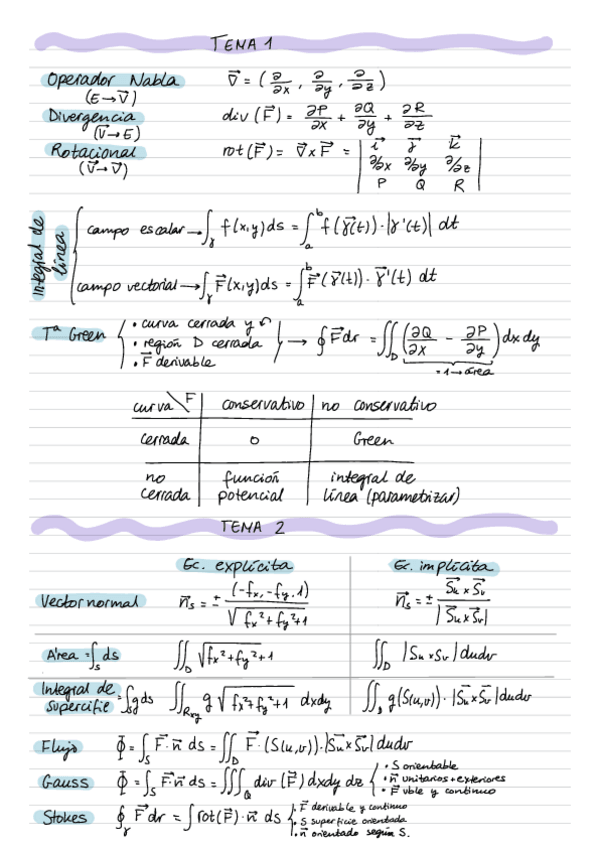 TEMA 1
Operador Nabla ∇⃗ = (∂/∂x, ∂/∂y, ∂/∂z)
(E→V⃗)
Divergencia div(F⃗) = ∂P/∂x + ∂Q/∂y + ∂R/∂z
(V⃗→E)
Rotacional rot(F⃗) = ∇⃗ x F⃗ = | i⃗ j⃗ k⃗ |
(V⃗→V⃗) | ∂/∂x ∂/∂y ∂/∂z |
| P Q R |
Integral de línea
campo escalar → ∫_γ f(x,y)ds = ∫_a^b f(γ⃗(t))·|γ⃗'(t)| dt
campo vectorial → ∫_γ F⃗(x,y)ds = ∫_a^b F⃗(γ⃗(t))·γ⃗'(t) dt
Tª Green { • curva cerrada y ↶
• región D cerrada } → ∮ F⃗dr = ∬_D (∂Q/∂x - ∂P/∂y) dxdy
• F⃗ derivable
=1→área
curva \ F | conservativo | no conservativo
cerrada | 0 | Green
no cerrada | función potencial | integral de línea (parametrizar)
TEMA 2
Ec. explícita Ec. implícita
Vector normal n⃗s = ± (-fx, -fy, 1) / √(fx²+fy²+1) n⃗s = ± S⃗u x S⃗v / |S⃗u x S⃗v|
Área = ∫_s ds ∬_D √fx²+fy²+1 ∬_D |Su x Sv| dudv
Integral de superficie = ∫_s gds ∬_Rxy g √fx²+fy²+1 dxdy ∬_D g(S(u,v))·|S⃗u x S⃗v| dudv
Flujo Φ = ∫_S F⃗·n⃗ ds = ∬_D F⃗·(S(u,v))·|S⃗u x S⃗v| dudv
Gauss Φ = ∫_S F⃗·n⃗ ds = ∭_Q div(F⃗) dxdy dz { • S orientable
• n⃗ unitarios + exteriores
• F⃗ vble y continuo
Stokes ∮_γ F⃗dr = ∫ rot(F⃗)·n⃗ ds { • F⃗ derivable y continuo
• S superficie orientada
• n⃗ orientado según S.